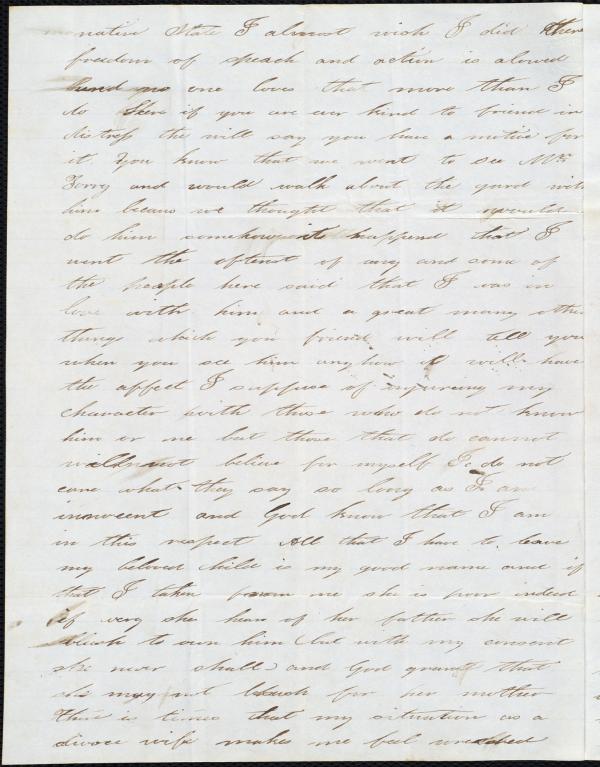 native State I almost wish I did there
freedom of speach and action is alowed
and no one loves that more than I
do Here if you are ever kind to friend in
distress the will say you have a motive for
it. You know that we went to see Mr
Torry and would walk about the yard with
him becaus we thought that it would
do him somehow it happend that I
went the oftenst of any and some of
the people here said that I was in
love with him and a great many other
things which you friend will tell you
when you see him anyhow it will have
the affect I suppose of injureing my
character with those who do not know
him or me but those that do cannot
will not believe for myself I do not
care what they say so long as I am
innocent and God know that I am
in this respect All that I have to leave
my beloved child is my good name and if
that I taken from me she is poor indeed
if very she hears of her father she will
blush to own him but with my consent
she never shall and God grant that
she may not blush for her mother
There is times that my situation as a
divoce wife makes me feel wretched